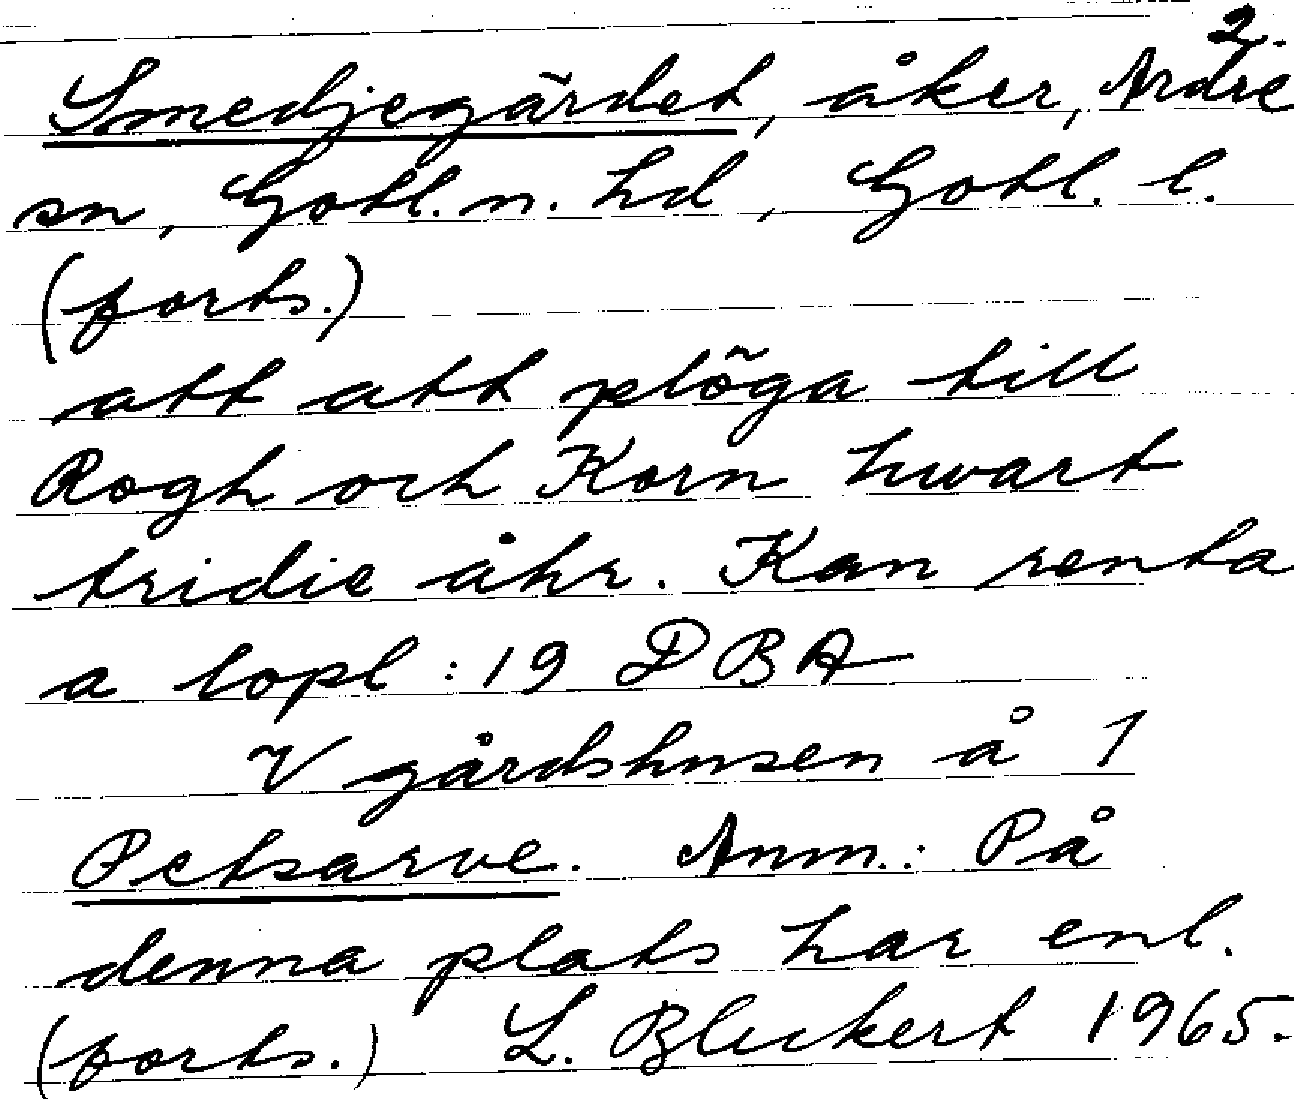 2.
Smedjegärdet, åker, Ardre
sn, Gotl. n. hd, Gotl. l.
(forts.)
att att plöga till
Rogh och Korn hwart
tridie åhr. Kan renta
a lopl: 19 DBA
V gårdshusen å 1
Petsarve. Anm.: På
denna plats har enl.
(forts.) L. Bleckert 1965.